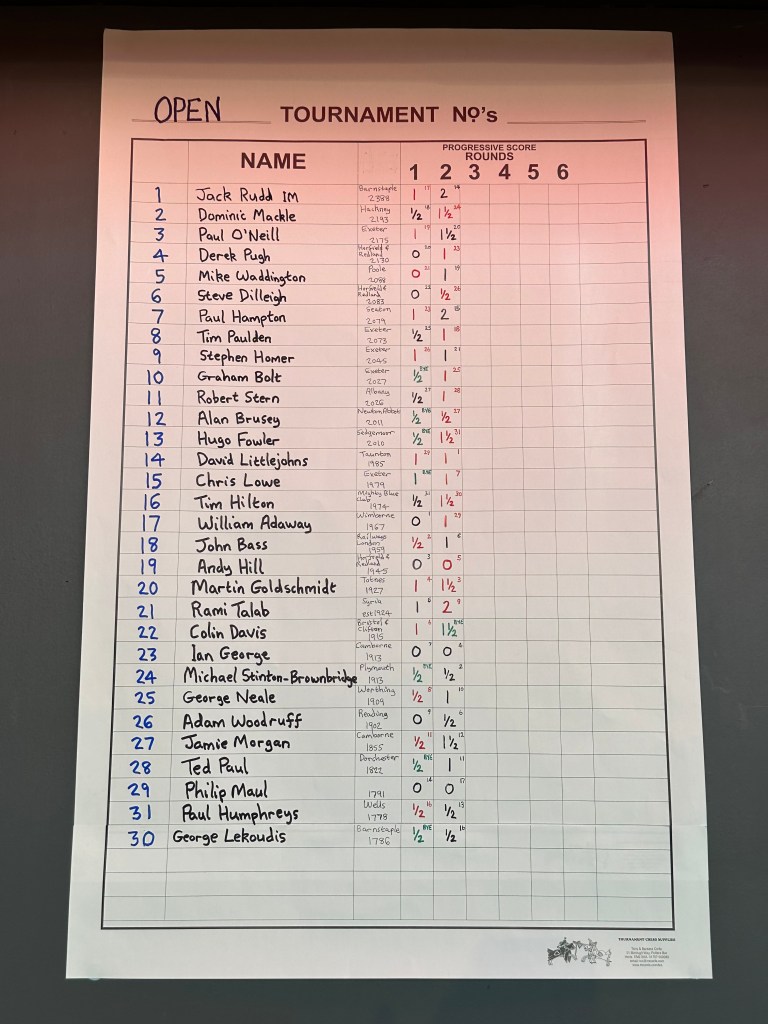 OPEN TOURNAMENT Nº's
PROGRESSIVE SCORE
NAME ROUNDS
1 2 3 4 5 6
1 Jack Rudd IM Barnstaple 2388 1 17 2 14
2 Dominic Mackle Hackney 2193 1/2 18 1 1/2 24
3 Paul O'Neill Exeter 2175 1 19 1 1/2 20
4 Derek Pugh Horfield & Redland 2130 0 20 1 23
5 Mike Waddington Poole 2088 0 21 1 19
6 Steve Dilleigh Horfield & Redland 2083 0 22 1/2 26
7 Paul Hampton Seaton 2079 1 23 2 15
8 Tim Paulden Exeter 2073 1/2 25 1 18
9 Stephen Homer Exeter 2045 1 26 1 21
10 Graham Bolt Exeter 2027 1/2 BYE 1 25
11 Robert Stern Albany 2026 1/2 27 1 28
12 Alan Brusey Newton Abbot 2011 1/2 BYE 1/2 27
13 Hugo Fowler Sedgemoor 2010 1/2 BYE 1 1/2 31
14 David Littlejohns Taunton 1985 1 29 1 1
15 Chris Lowe Exeter 1979 1 BYE 1 7
16 Tim Hilton Mighty Blue Club 1974 1/2 31 1 1/2 30
17 William Adaway Wimborne 1967 0 1 1 29
18 John Bass Railways London 1959 1/2 2 1 8
19 Andy Hill Horfield & Redland 1945 0 3 0 5
20 Martin Goldschmidt Totnes 1927 1 4 1 1/2 3
21 Rami Talab Syria est 1924 1 5 2 9
22 Colin Davis Bristol & Clifton 1915 1 6 1 1/2 BYE
23 Ian George Camborne 1913 0 7 0 4
24 Michael Stinton-Brownbridge Plymouth 1913 1/2 BYE 1/2 2
25 George Neale Worthing 1909 1/2 8 1 10
26 Adam Woodruff Reading 1902 0 9 1/2 6
27 Jamie Morgan Camborne 1855 1/2 11 1 1/2 12
28 Ted Paul Dorchester 1822 1/2 BYE 1 11
29 Philip Maul 1791 0 14 0 17
31 Paul Humphreys Wells 1778 1/2 16 1/2 13
30 George Lekoudis Barnstaple 1786 1/2 BYE 1/2 16
TOURNAMENT CHESS SUPPLIES